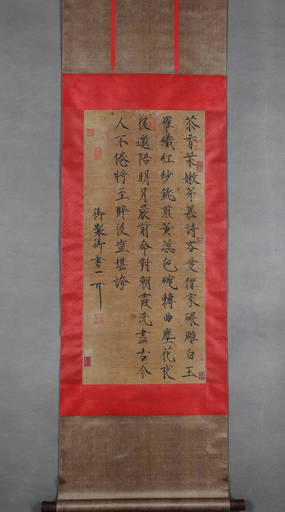 茶香葉嫩芽慕詩客愛僧家碾雕白玉
羅織紅紗銚煎黃蕊色碗轉曲塵花夜
後邀陪明月晨前命對朝霞洗盡古今
人不倦將至醉後豈堪誇
御製御書